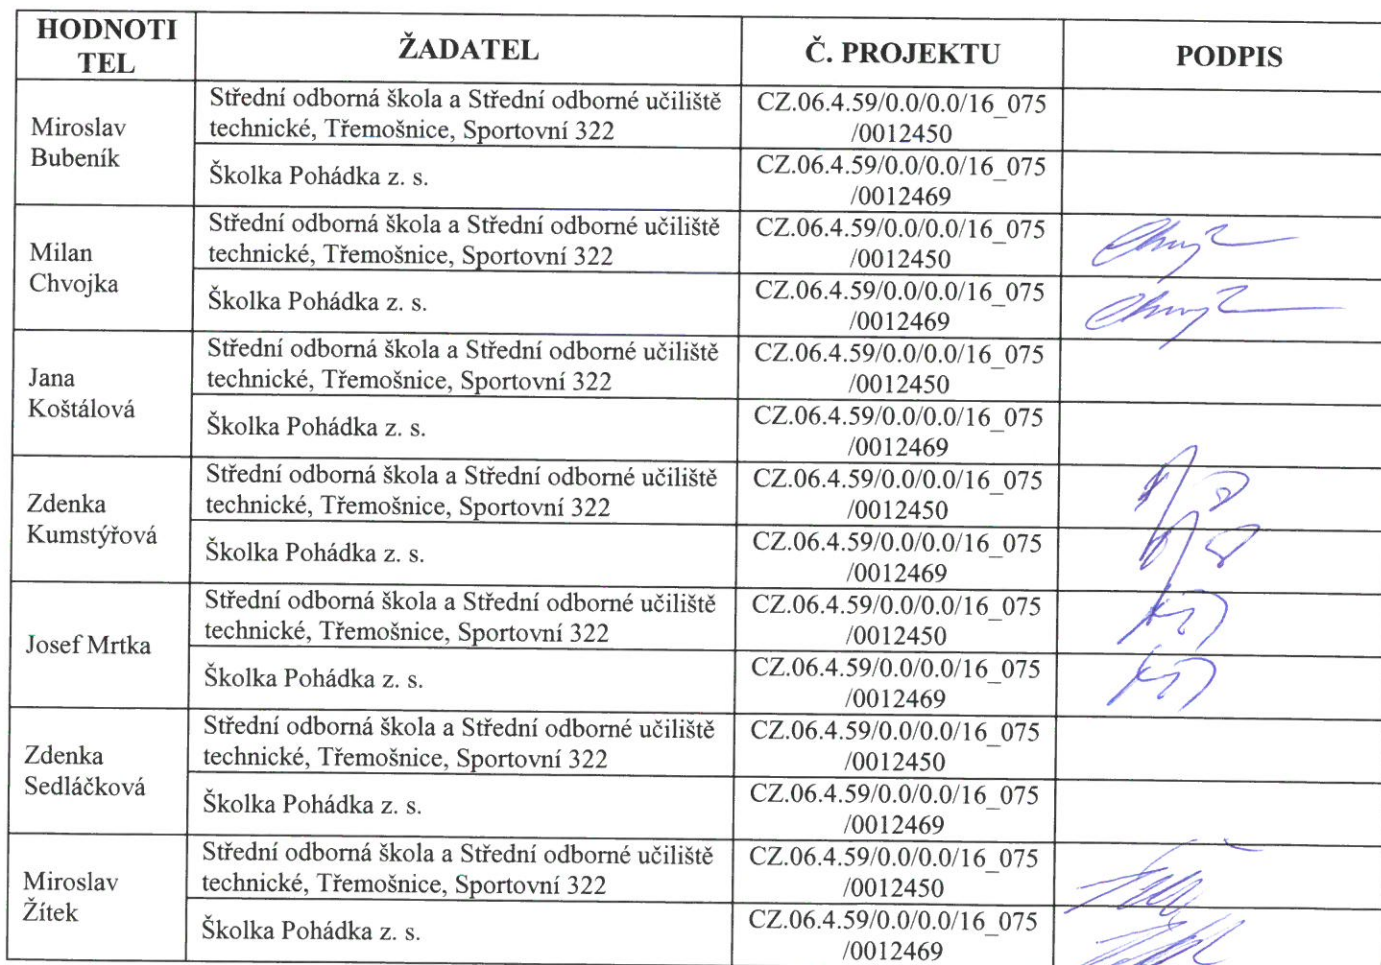 HODNOTI
TEL
ŽADATEL
Č. PROJEKTU
PODPIS
Miroslav
Bubeník
Střední odborná škola a Střední odborné učiliště
technické, Třemošnice, Sportovní 322
CZ.06.4.59/0.0/0.0/16_075
/0012450
Školka Pohádka z. s.
CZ.06.4.59/0.0/0.0/16_075
/0012469
Milan
Chvojka
Střední odborná škola a Střední odborné učiliště
technické, Třemošnice, Sportovní 322
CZ.06.4.59/0.0/0.0/16_075
/0012450
Školka Pohádka z. s.
CZ.06.4.59/0.0/0.0/16_075
/0012469
Jana
Koštálová
Střední odborná škola a Střední odborné učiliště
technické, Třemošnice, Sportovní 322
CZ.06.4.59/0.0/0.0/16_075
/0012450
Školka Pohádka z. s.
CZ.06.4.59/0.0/0.0/16_075
/0012469
Zdenka
Kumstýřová
Střední odborná škola a Střední odborné učiliště
technické, Třemošnice, Sportovní 322
CZ.06.4.59/0.0/0.0/16_075
/0012450
Školka Pohádka z. s.
CZ.06.4.59/0.0/0.0/16_075
/0012469
Josef Mrtka
Střední odborná škola a Střední odborné učiliště
technické, Třemošnice, Sportovní 322
CZ.06.4.59/0.0/0.0/16_075
/0012450
Školka Pohádka z. s.
CZ.06.4.59/0.0/0.0/16_075
/0012469
Zdenka
Sedláčková
Střední odborná škola a Střední odborné učiliště
technické, Třemošnice, Sportovní 322
CZ.06.4.59/0.0/0.0/16_075
/0012450
Školka Pohádka z. s.
CZ.06.4.59/0.0/0.0/16_075
/0012469
Miroslav
Žítek
Střední odborná škola a Střední odborné učiliště
technické, Třemošnice, Sportovní 322
CZ.06.4.59/0.0/0.0/16_075
/0012450
Školka Pohádka z. s.
CZ.06.4.59/0.0/0.0/16_075
/0012469